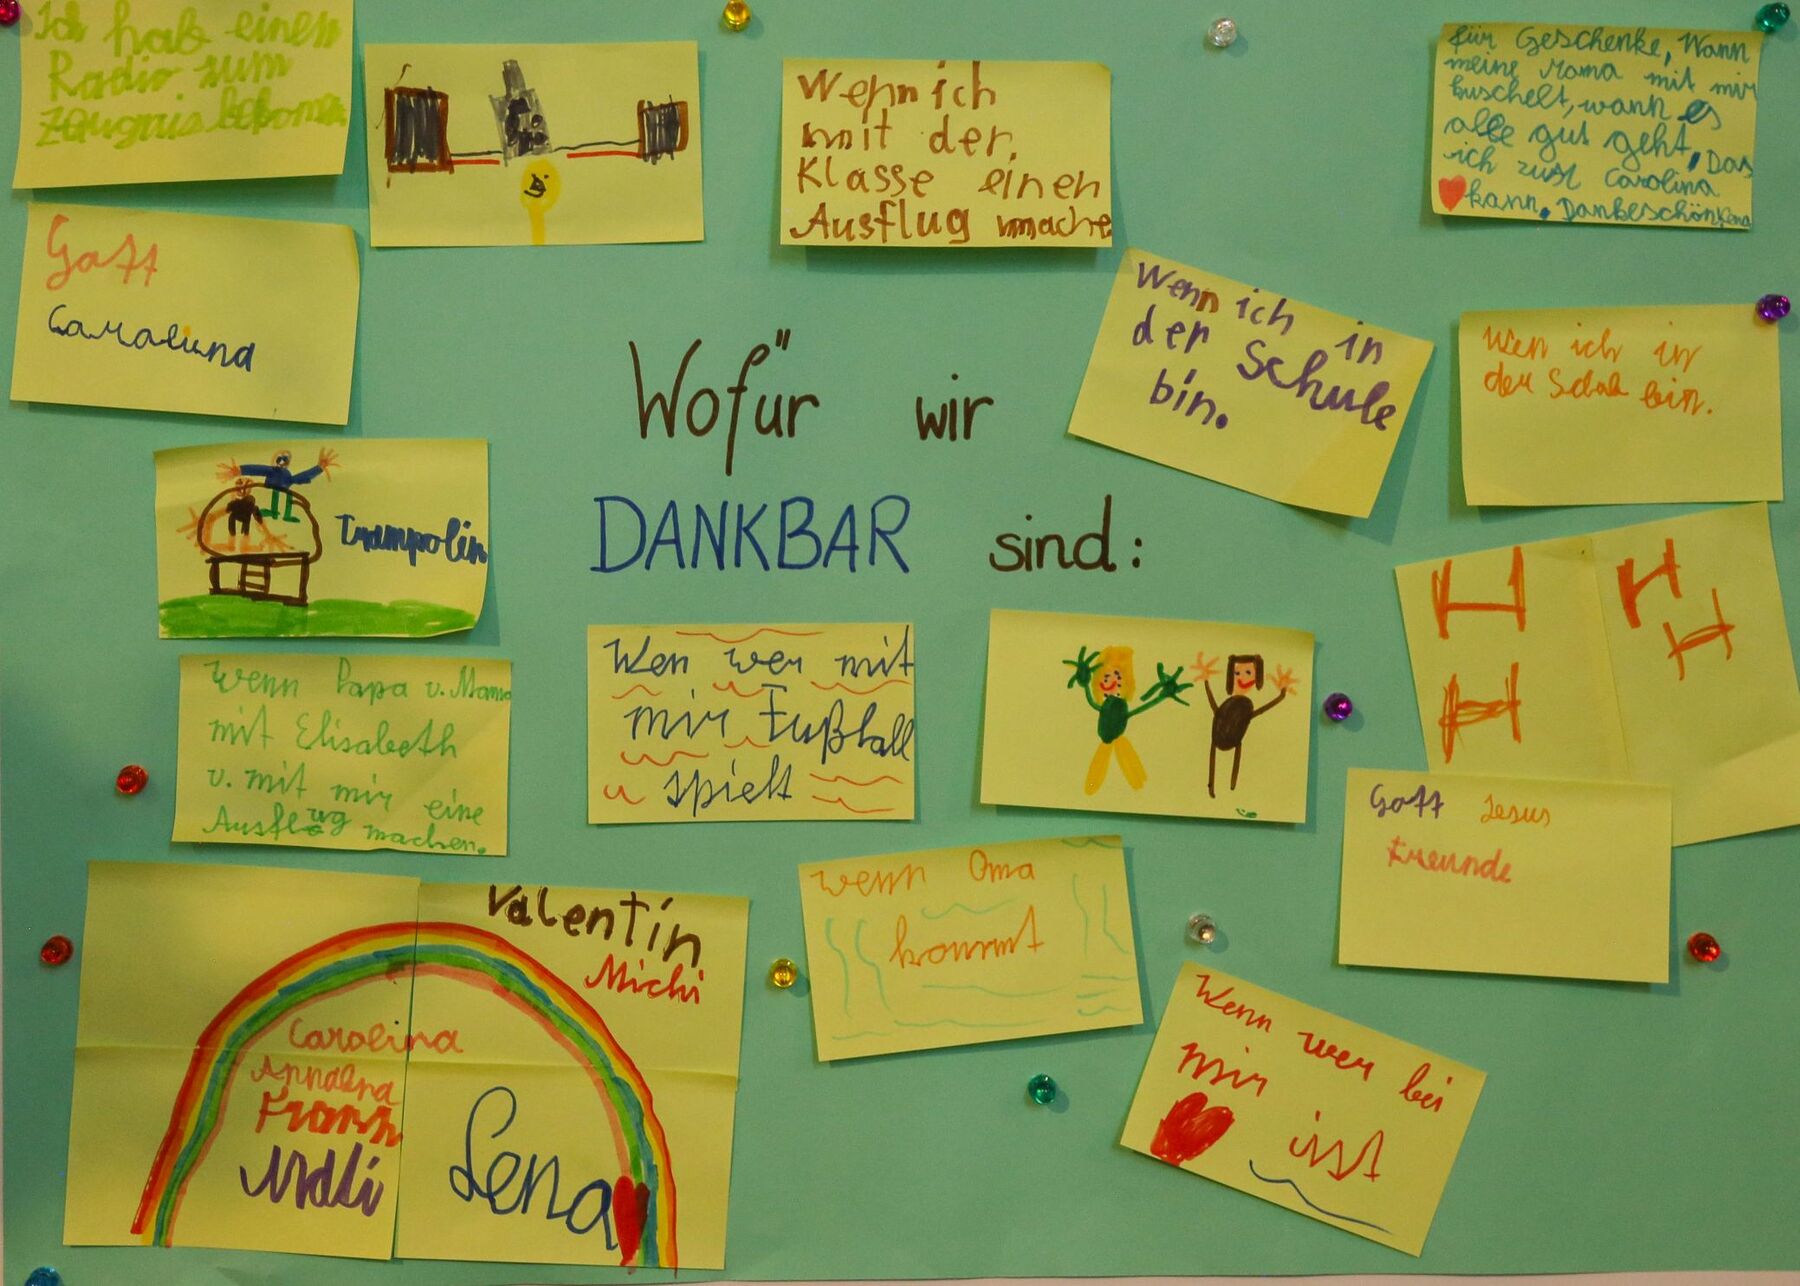 Ich hab einen
Radio zum
Zeugnis bekomm
Wenn ich
mit der
Klasse einen
Ausflug mache
für Geschenke, Wann
meine Mama mit mir
kuschelt, wann es
alle gut geht, Das
ich zur Carolina
kann. Dankeschön Lena
Gott
Wenn ich in
der Schule
bin.
Wen ich in
der bin.
Wofür wir
DANKBAR sind:
Trampolin
wenn Papa u. Mama
mit Elisabeth
u. mit mir eine
Ausflug machen.
Wen wer mit
mir Fußball
spielt
Gott Jesus
Freunde
wenn Oma
kommt
Valentin
Michi
Carolina
Annalena
Lena
Wenn wer bei
mir
ist